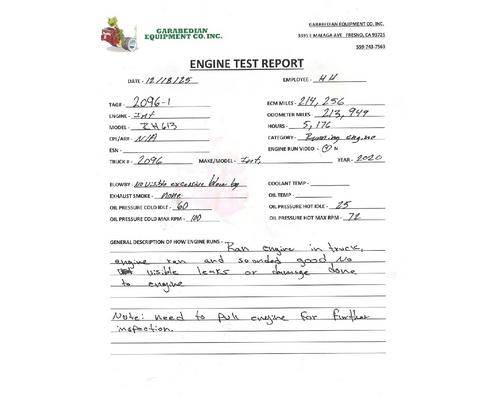 GARABEDIAN
EQUIPMENT CO. INC.
GARABEDIAN EQUIPMENT CO. INC.
FRESNO, CA 93725
559-743-7563
ENGINE TEST REPORT
DATE - 12/18/25 EMPLOYEE - H H
TAG# - 2096-1 ECM MILES - 214,256
ENGINE - Int ODOMETER MILES - 213,949
MODEL - RH613 HOURS - 5,176
CPL/AR# - N/A CATEGORY - Running engine
ESN - ENGINE RUN VIDEO - Y N
TRUCK # - 2096 MAKE/MODEL - Int, YEAR - 2020
BLOWBY - no visible excessive blow by COOLANT TEMP -
EXHAUST SMOKE - none OIL TEMP -
OIL PRESSURE COLD IDLE - 60 OIL PRESSURE HOT IDLE - 25
OIL PRESSURE COLD MAX RPM - 100 OIL PRESSURE HOT MAX RPM - 72
GENERAL DESCRIPTION OF HOW ENGINE RUNS - Ran engine in truck,
engine ran and sounded good No
visible leaks or damage done
to engine
Note: need to pull engine for further
inspection.